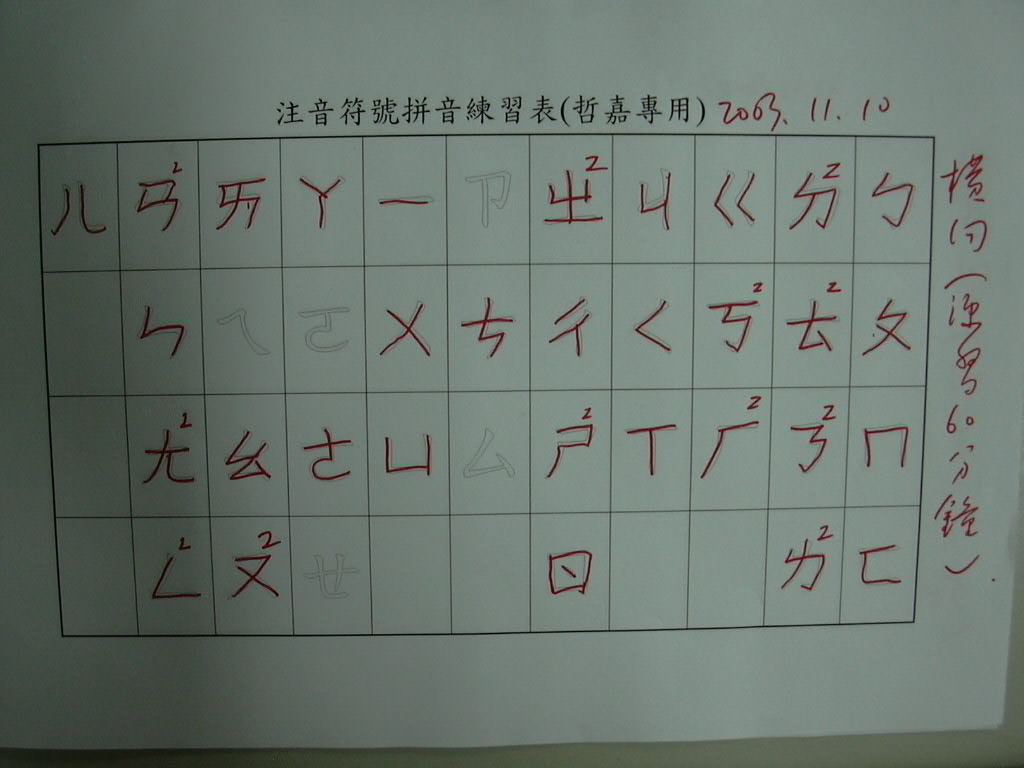 注音符號拼音練習表(哲嘉專用) 2003. 11. 10
ㄦ ㄢ2 ㄞ ㄚ ㄧ ㄗ ㄓ2 ㄐ ㄍ ㄉ2 ㄅ
ㄣ ㄟ ㄛ ㄨ ㄘ ㄔ ㄑ ㄎ2 ㄊ2 ㄆ
ㄤ2 ㄠ ㄜ ㄩ ㄙ ㄕ2 ㄒ ㄏ2 ㄋ2 ㄇ
ㄥ2 ㄡ2 ㄝ ㄖ ㄌ2 ㄈ
橫向(練習60分鐘).